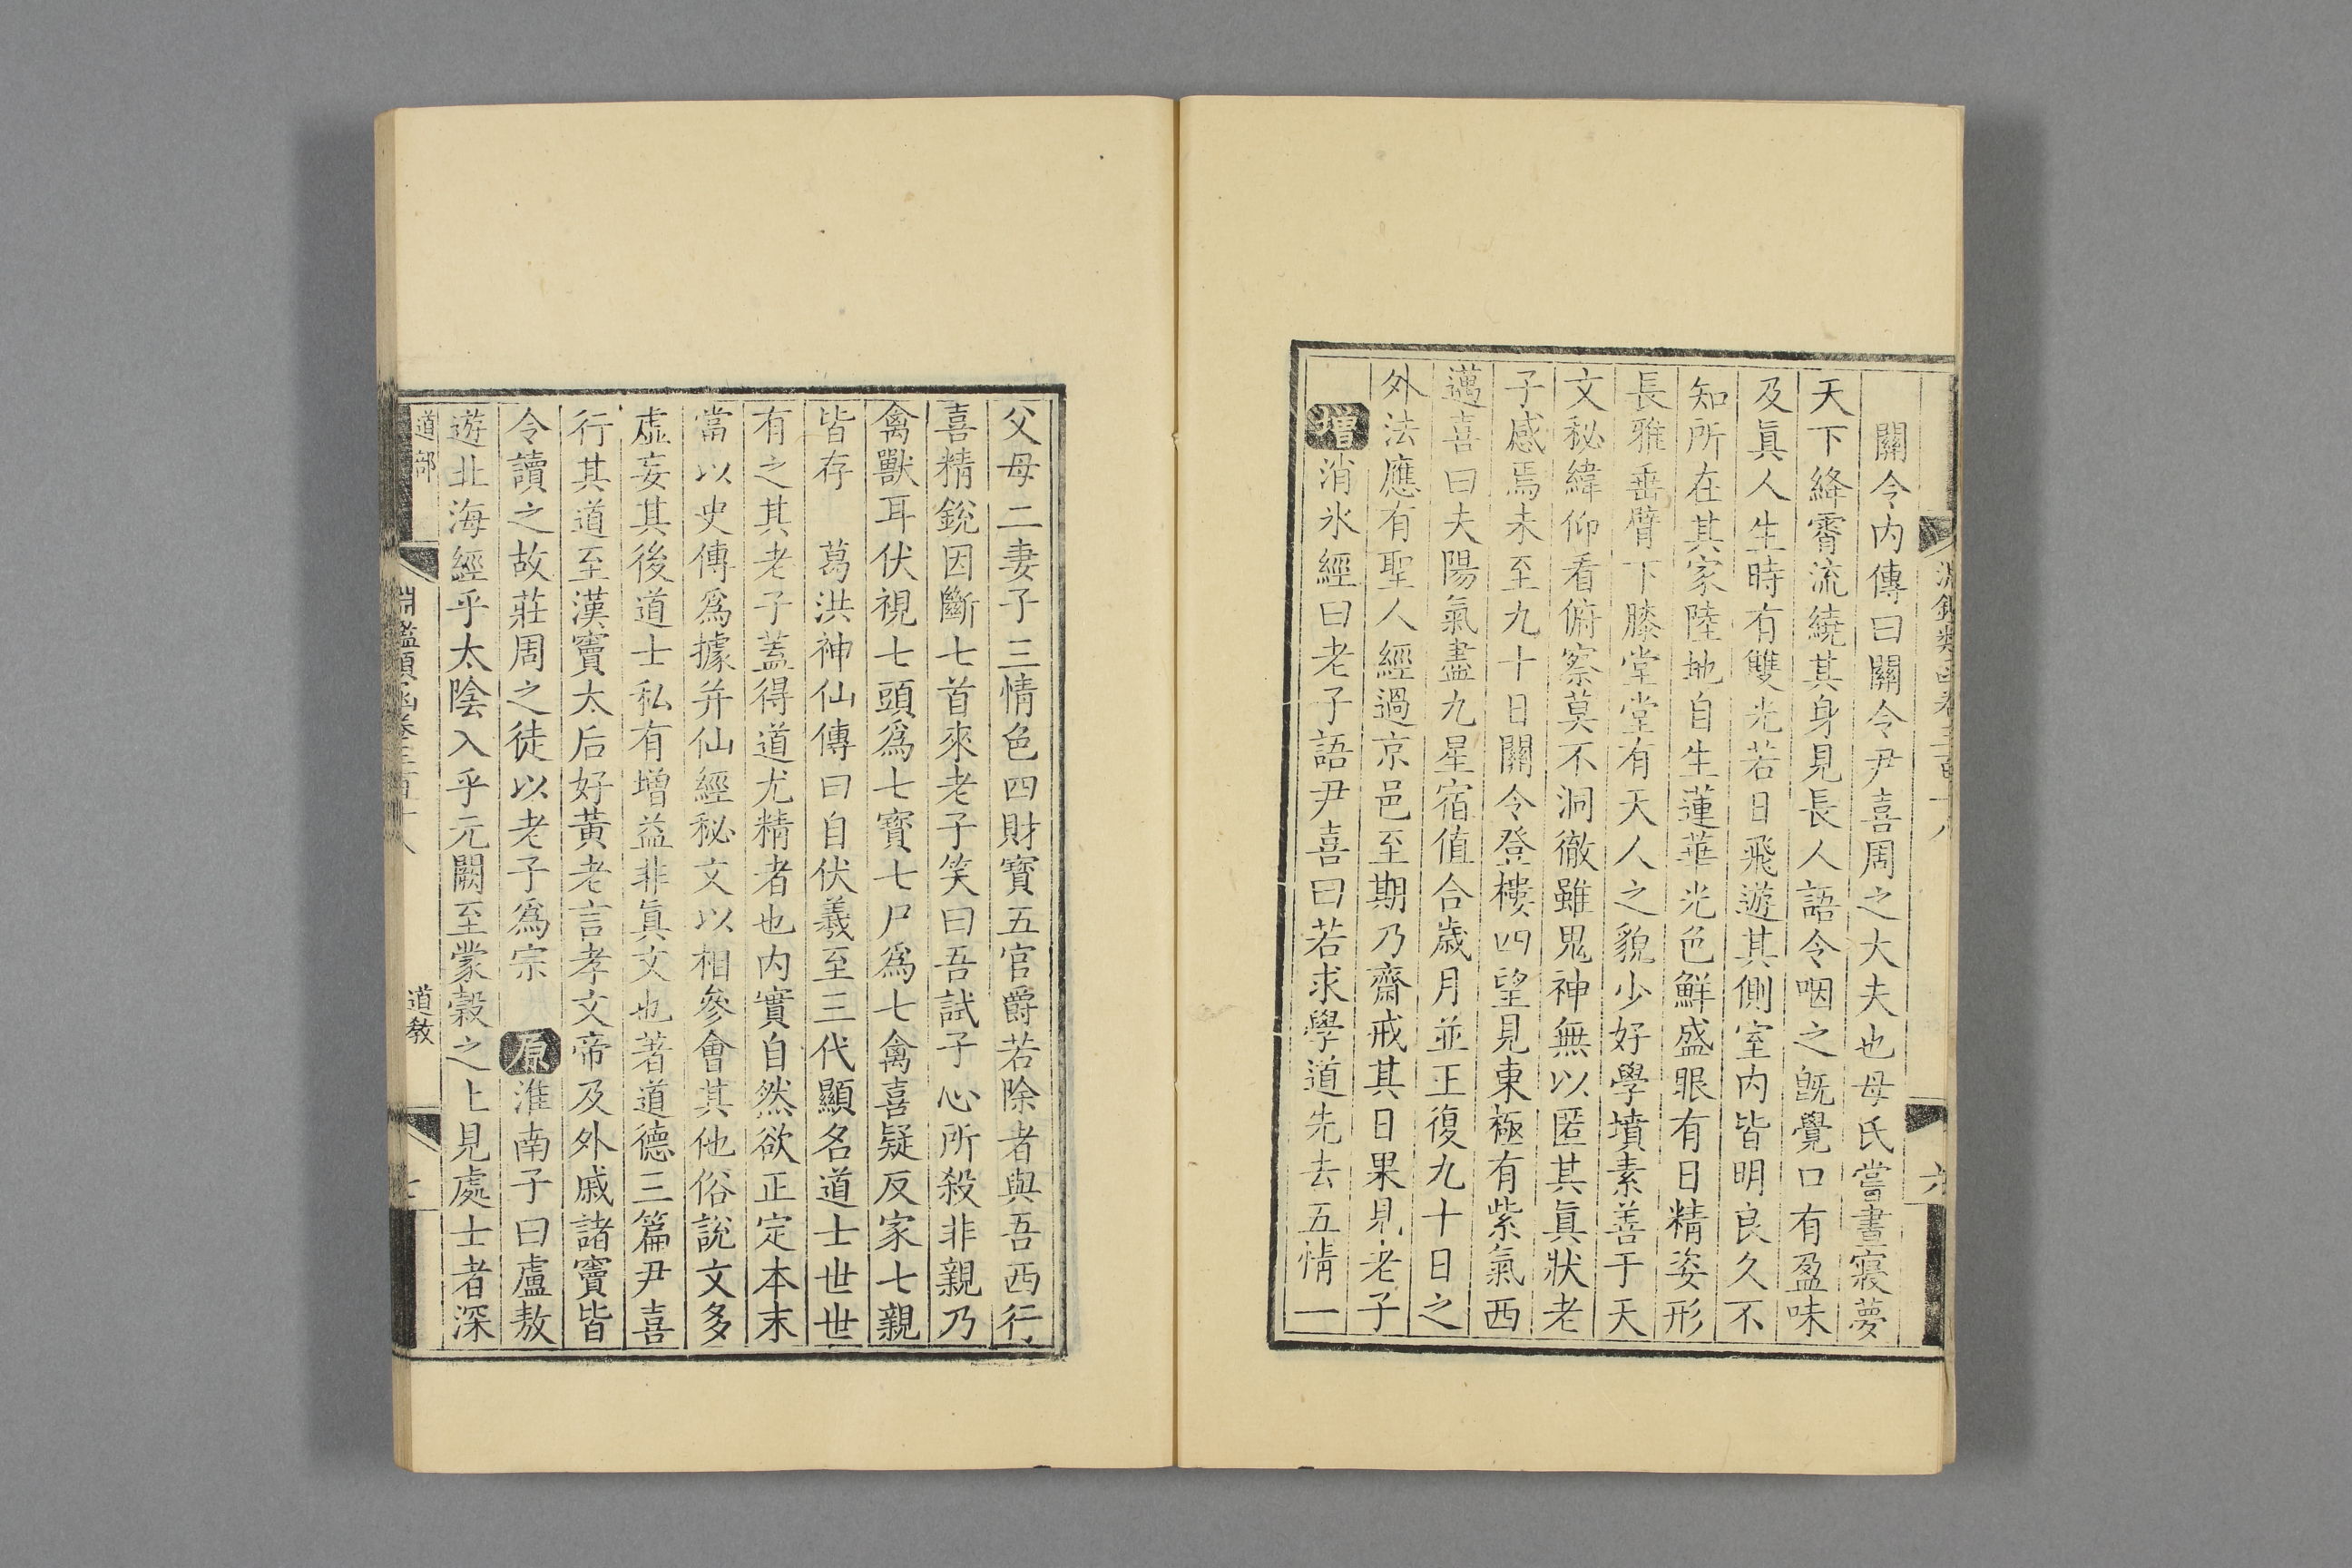 關令内傳曰關令尹喜周之大夫也母氏嘗晝寢夢
天下絳霄流繞其身見長人語令咽之旣覺口有盈味
及眞人生時有雙光若日飛遊其側室内皆明良久不
知所在其家陸地自生蓮華光色鮮盛眼有日精姿形
長雅垂臂下膝堂堂有天人之貌少好學墳素善于天
文秘緯仰看俯察莫不洞徹雖鬼神無以匿其眞狀老
子感焉未至九十日關令登樓四望見東極有紫氣西
邁喜曰夫陽氣盡九星宿值合歲月並王復九十日之
外法應有聖人經過京邑至期乃齋戒其日果見老子
增消氷經曰老子語尹喜曰若求學道先去五情一
父母二妻子三情色四財寳五官爵若除者與吾西行
喜精銳因斷七首來老子笑曰吾試子心所殺非親乃
禽獸耳伏視七頭爲七寳七尸爲七禽喜疑反家七親
皆存　葛洪神仙傳曰自伏羲至三代顯名道士世世
有之其老子蓋得道尤精者也内實自然欲正定本末
當以史傳爲據并仙經秘文以相參會其他俗說文多
虛妄其後道士私有增益非眞文也著道德三篇尹喜
行其道至漢竇太后好黃老言孝文帝及外戚諸竇皆
令讀之故莊周之徒以老子爲宗　原淮南子曰盧敖
遊北海經乎太陰入乎元闕至蒙穀之上見處士者深
道部　淵鑑類函卷三百十八　道教　七